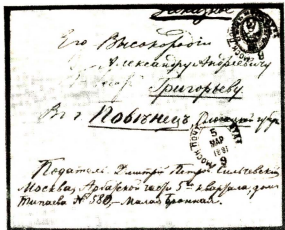 Заказное
Его Высокородію
Александру Андреевичу
Григорьеву
В г. Повѣнецъ Олонецкой губ.
5
МАР
1881
Податель: Дмитрій Петров Сильчевскій
Москва, Арбатской части 5го квартала, домъ
№ 580, Малая Бронная.